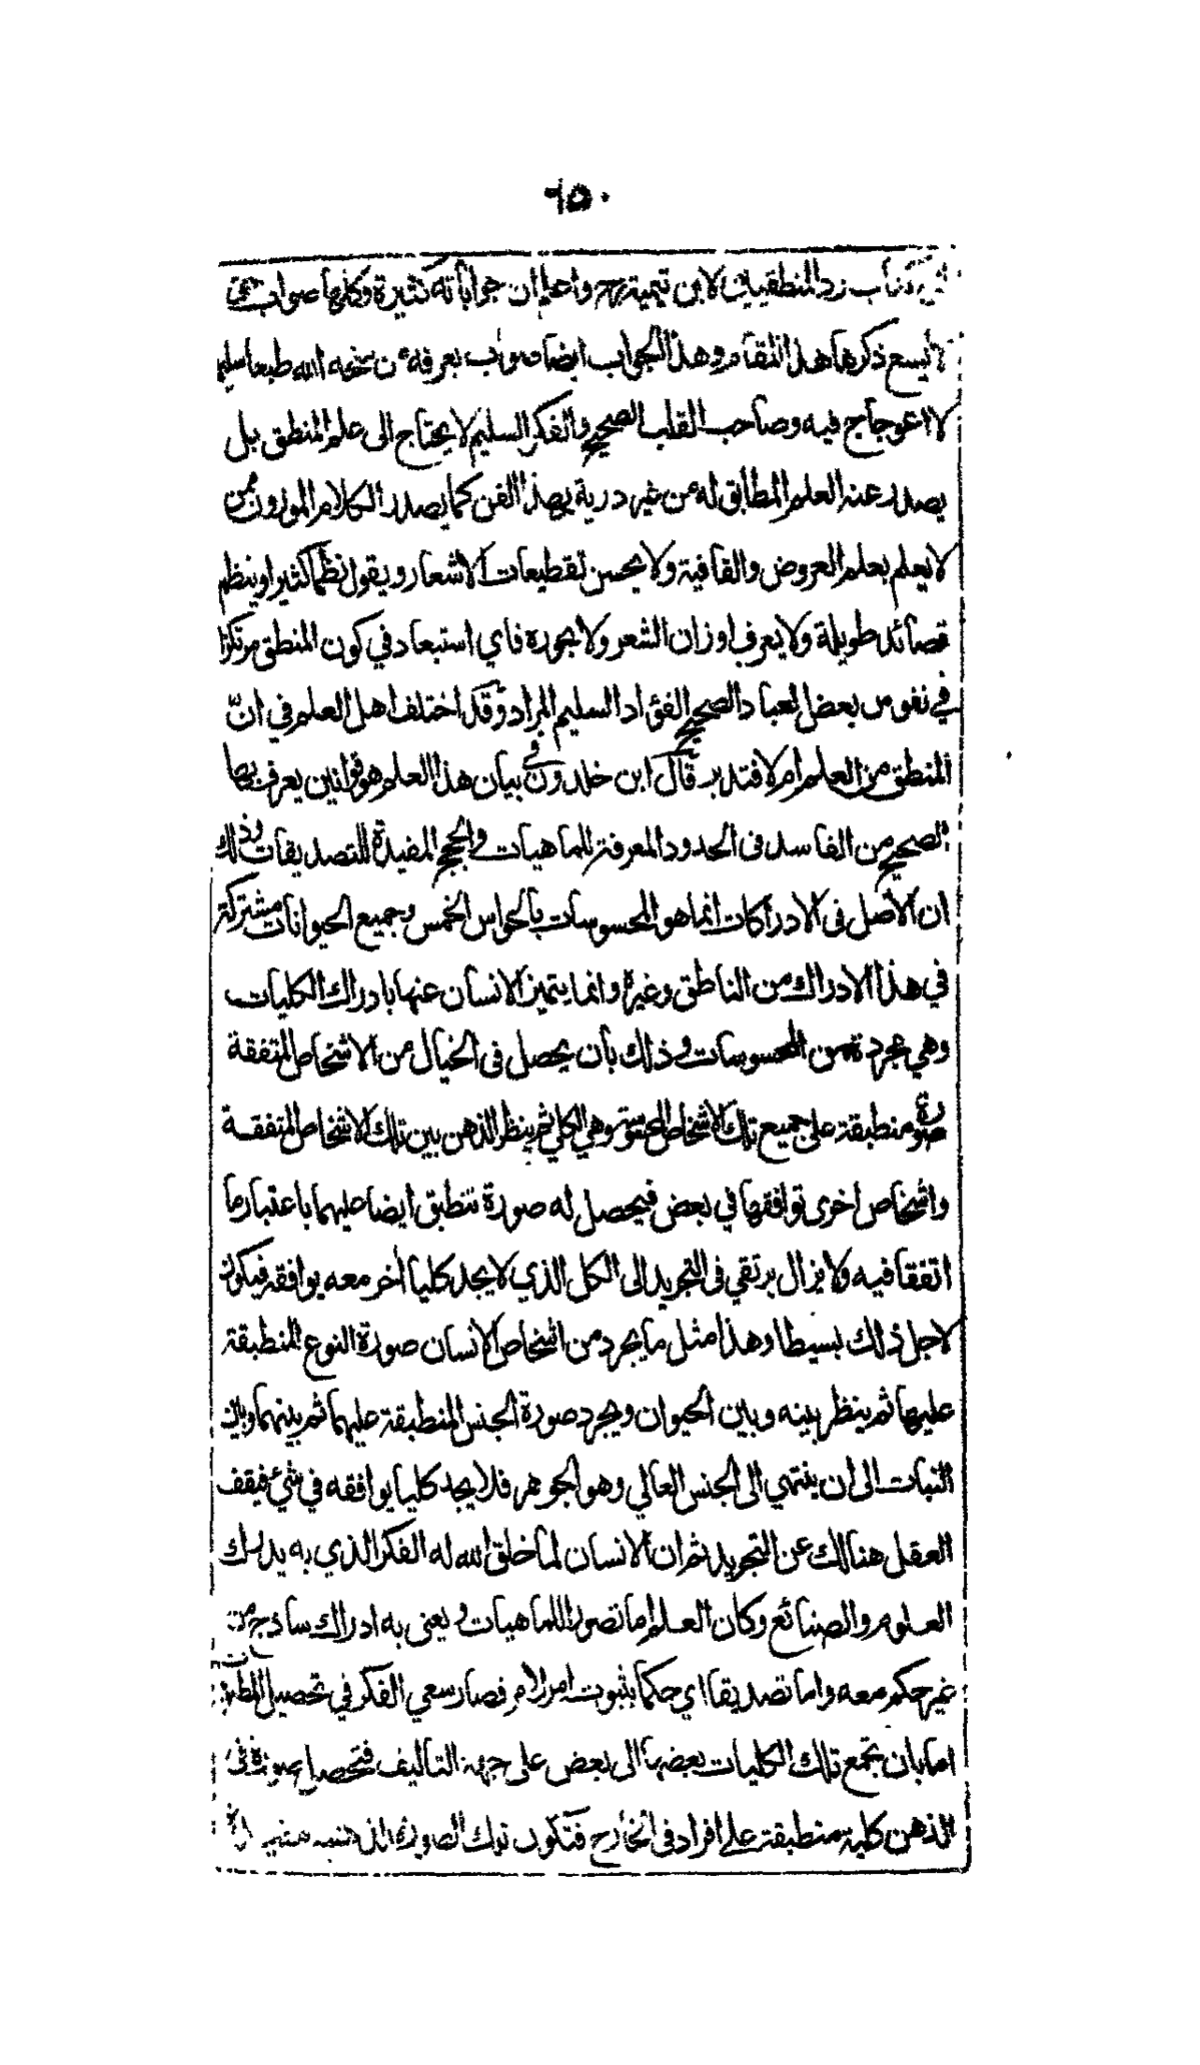 ٦٥٠
كتاب رد المنطقيين لابن تيمية رح واعلم ان جواباته كثيرة وكلها صواب
لا يسع ذكرها هذا المقام وهذا الجواب ايضا صواب يعرفه من منحه الله طبعا سليما
لا اعوجاج فيه وصاحب القلب الصحيح والفكر السليم لا يحتاج الى علم المنطق بل
يصدر عنه العلم المطابق له من غير درية بهذا الفن كما يصدر الكلام الموزون ممن
لا يعلم بعلم العروض والقافية ولا يحسن تقطيعات الاشعار ويقول نظما كثيرا وينظم
قصائد طويلة ولا يعرف اوزان الشعر ولا بحوره فاي استبعاد في كون المنطق مرتكزا
في نفوس بعض العباد الصحيح الفؤاد السليم المراد وقد اختلف اهل العلم في انّ
المنطق من العلم ام لا فتدبر قال ابن خلدون في بيان هذا العلم هو قوانين يعرف بها
الصحيح من الفاسد في الحدود المعرفة للماهيات والحجج المفيدة للتصديقات وذلك
ان الاصل في الادراكات انما هو المحسوسات بالحواس الخمس وجميع الحيوانات مشتركة
في هذا الادراك من الناطق وغيره وانما يتميز الانسان عنها بادراك الكليات
وهي مجردة من المحسوسات وذلك بان يحصل في الخيال من الاشخاص المتفقة
صورة منطبقة على جميع تلك الاشخاص المحسوسة وهي الكلي ثم ينظر الذهن بين تلك الاشخاص المتفقة
واشخاص اخرى توافقها في بعض فيحصل له صورة تنطبق ايضا عليهما باعتبار ما
اتفقا فيه ولا يزال يرتقي في التجريد الى الكل الذي لا يجد كليا آخر معه يوافقه فيكون
لاجل ذلك بسيطا وهذا مثل ما يجرد من اشخاص الانسان صورة النوع المنطبقة
عليها ثم ينظر بينه وبين الحيوان ويجرد صورة الجنس المنطبقة عليهما ثم بينهما وبين
النبات الى ان ينتهي الى الجنس العالي وهو الجوهر فلا يجد كليا يوافقه في شئ فيقف
العقل هنالك عن التجريد ثم ان الانسان لما خلق الله له الفكر الذي به يدرك
العلوم والصنائع وكان العلم اما تصورا للماهيات ويعني به ادراك ساذج من
غير حكم معه واما تصديقا اي حكما بثبوت امر لامر فصار سعي الفكر في تحصيل المطلوبات
اما بان تجمع تلك الكليات بعضها الى بعض على جهة التاليف فتحصل صورة في
الذهن كلية منطبقة على افراد في الخارج فتكون تلك الصورة الذهنية مفيدة